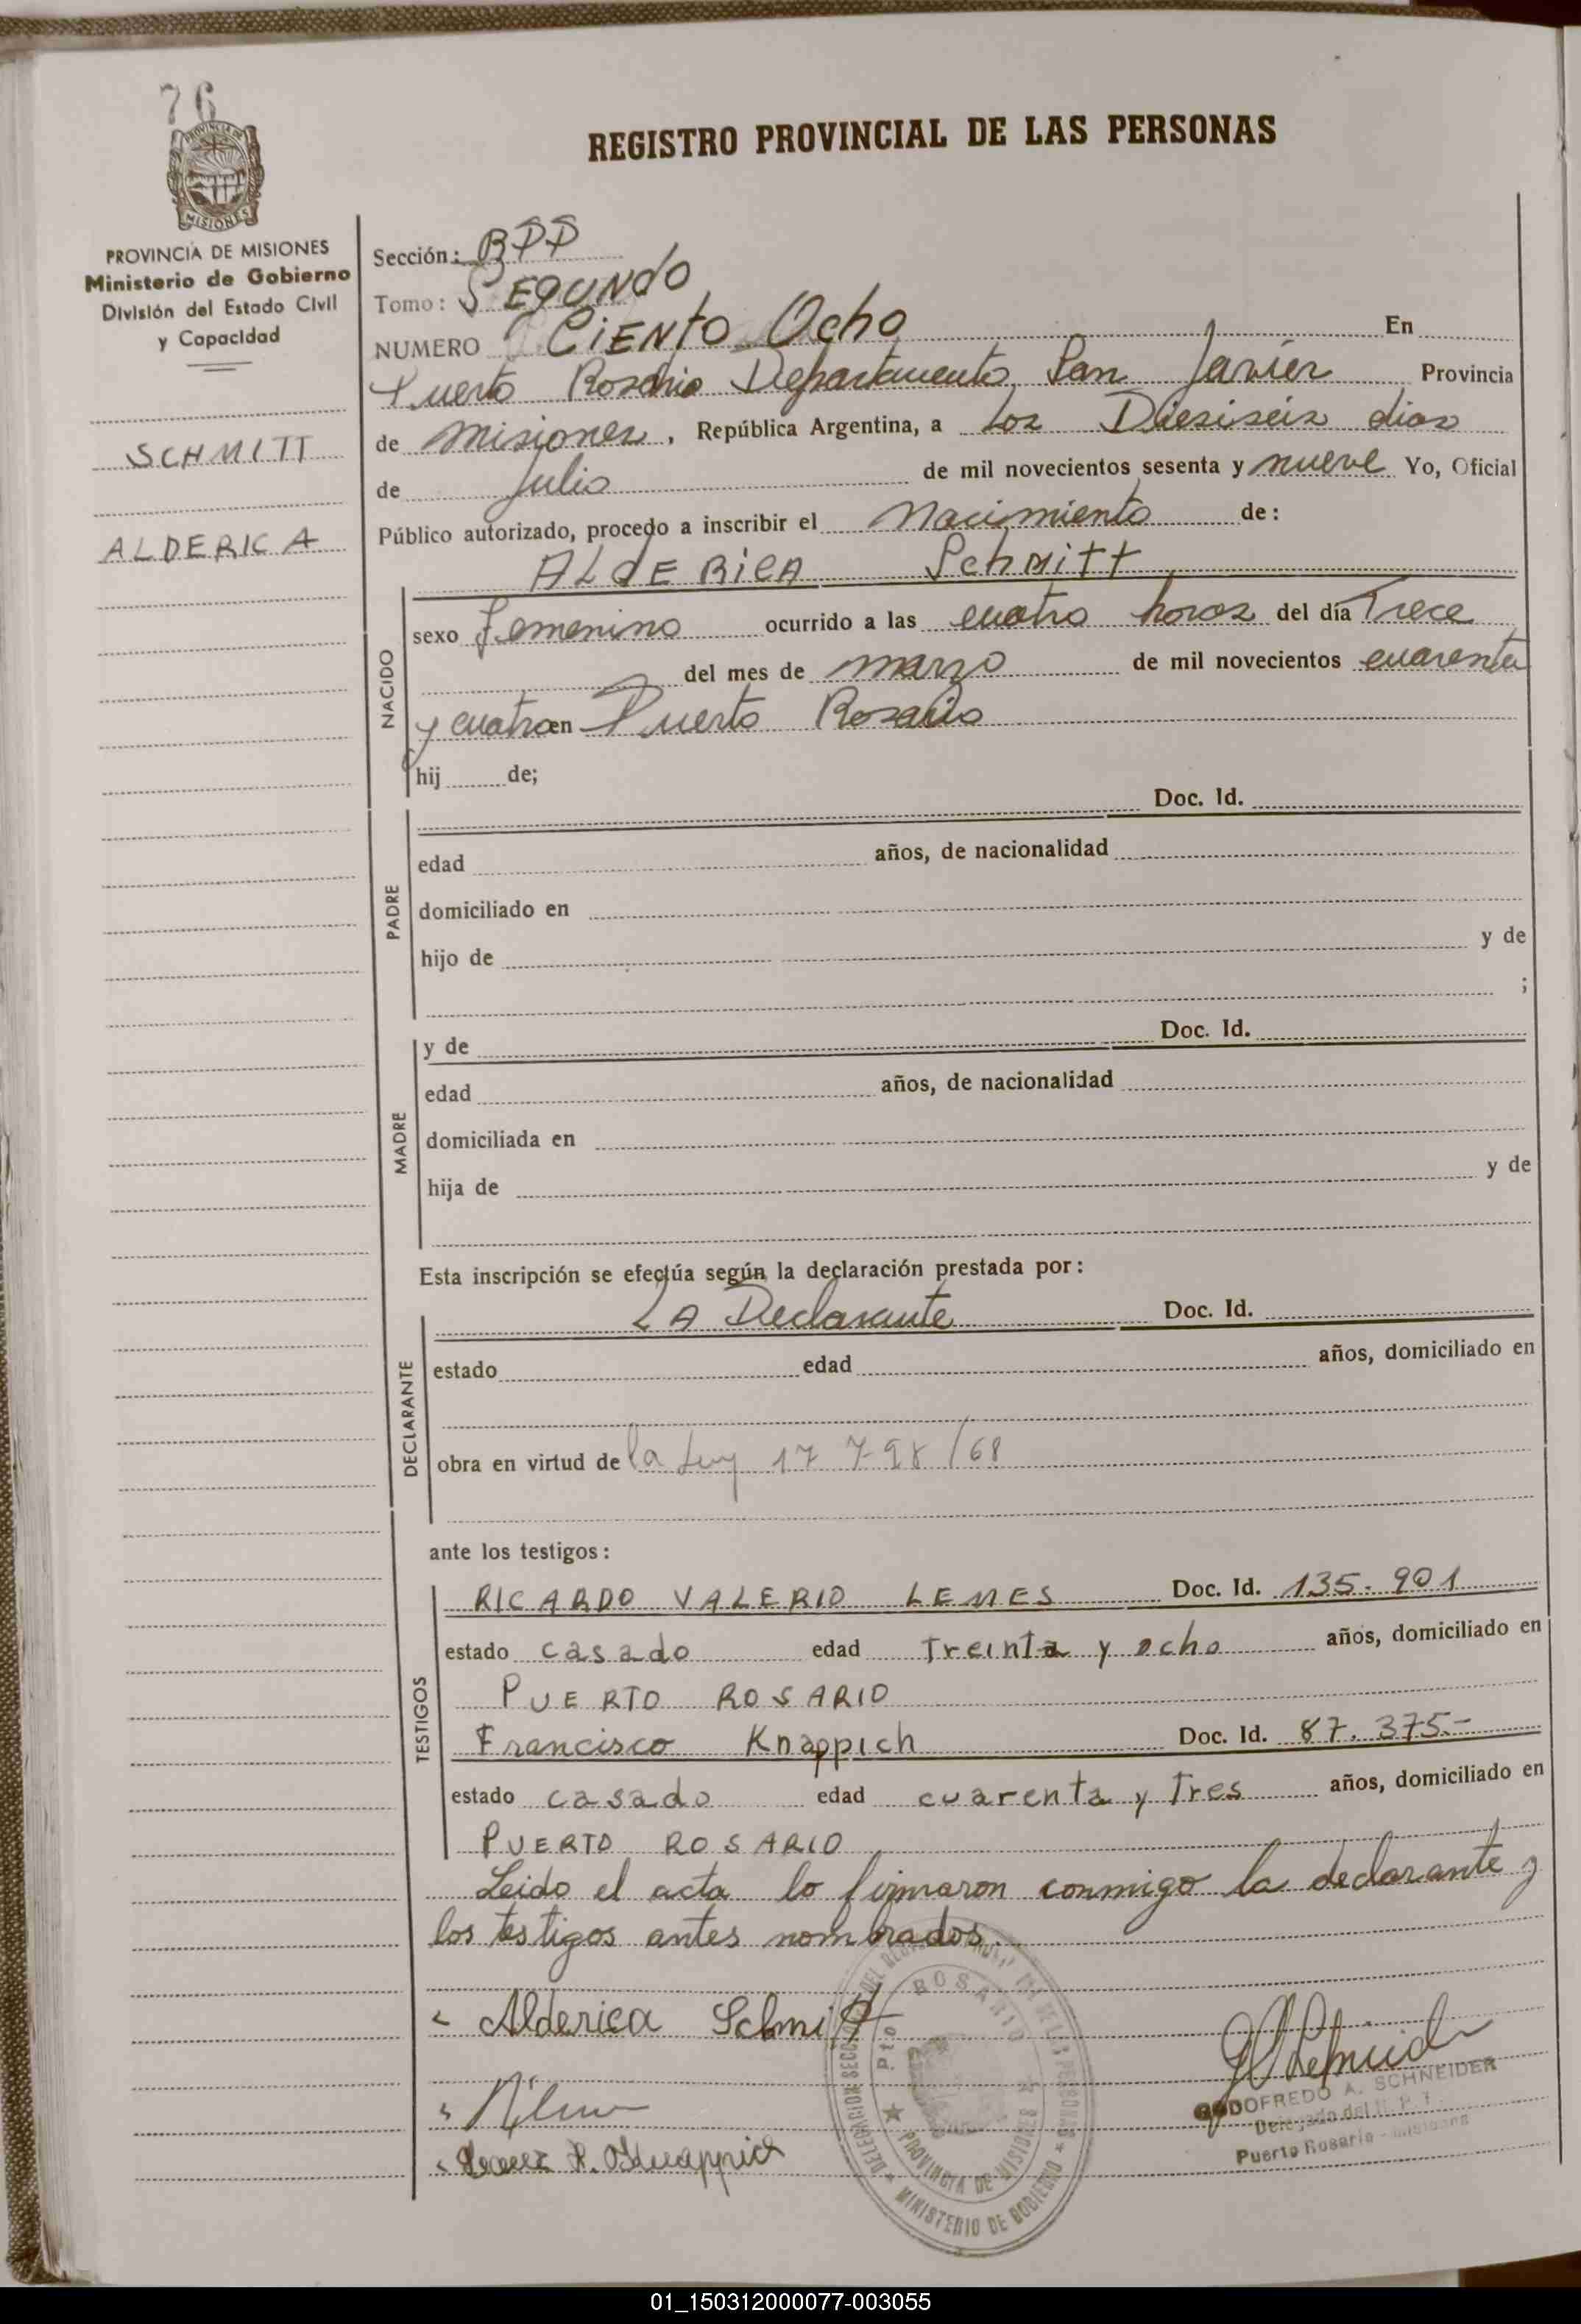 76
REGISTRO PROVINCIAL DE LAS PERSONAS
PROVINCIA DE MISIONES
Ministerio de Gobierno
División del Estado Civil
y Capacidad
SCHMITT
ALDERICA
Sección: BPP
Tomo: SEGUNDO
NUMERO CIENTO Ocho En
Puerto Rosario Departamento San Javier Provincia
de Misiones, República Argentina, a los Diesiseis dias
de Julio de mil novecientos sesenta y nueve Yo, Oficial
Público autorizado, procedo a inscribir el Nacimiento de:
ALdERiCA Schmitt
NACIDO
sexo femenino ocurrido a las cuatro horas del día Trece
del mes de marzo de mil novecientos cuarenta
y cuatro en Puerto Rosario
hij de;
PADRE
Doc. Id.
edad años, de nacionalidad
domiciliado en
hijo de y de
;
MADRE
y de Doc. Id.
edad años, de nacionalidad
domiciliada en
hija de y de
Esta inscripción se efectúa según la declaración prestada por:
DECLARANTE
LA Declarante Doc. Id.
estado edad años, domiciliado en
obra en virtud de la Ley 17 798/68
ante los testigos:
TESTIGOS
RICARDO VALERIO LEMES Doc. Id. 135.901
estado casado edad Treinta y ocho años, domiciliado en
PUERTO ROSARIO
Francisco Knappich Doc. Id. 87.375.-
estado casado edad cuarenta y Tres años, domiciliado en
PUERTO ROSARIO
Leido el acta lo firmaron conmigo la declarante y
los testigos antes nombrados.
Alderica Schmitt
Pto ROSARIO
PROVINCIA DE MISIONES
MINISTERIO DE GOBIERNO
GODOFREDO A. SCHNEIDER
Delegado del R. P. P.
Puerto Rosario - Misiones
01_150312000077-003055